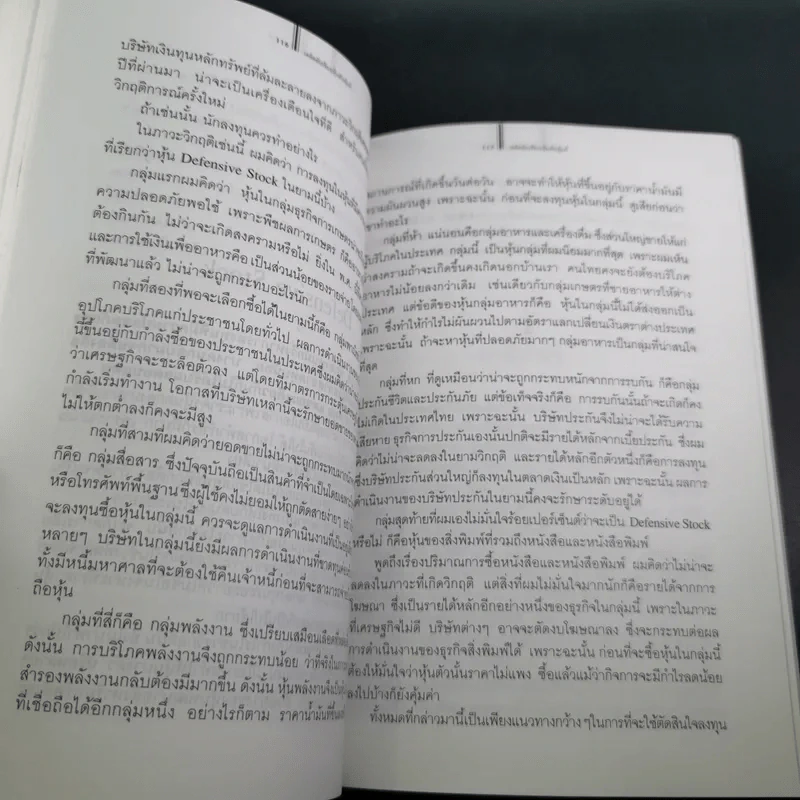 118
บริษัทเงินทุนหลักทรัพย์ที่ล้มละลายลงจากภาวะ
ปีที่ผ่านมา น่าจะเป็นเครื่องเตือนใจที่ดี
วิกฤติการณ์ครั้งใหม่
ถ้าเช่นนั้น นักลงทุนควรทำอย่างไร
ในภาวะวิกฤติเช่นนี้ ผมคิดว่า การลงทุนในหุ้น
ที่เรียกว่าหุ้น Defensive Stock ในยามนี้บ้าง
กลุ่มแรกผมคิดว่า หุ้นในกลุ่มธุรกิจการเกษตร
ความปลอดภัยพอใช้ เพราะพืชผลการเกษตร
ต้องกินกัน ไม่ว่าจะเกิดสงครามหรือไม่ ยิ่งใน พ.ศ.
และการใช้เงินเพื่ออาหารคือ เป็นส่วนน้อยของรายจ่าย
ที่พัฒนาแล้ว ไม่น่าจะถูกกระทบอะไรนัก
กลุ่มที่สองที่พอจะเลือกซื้อได้ในยามนี้ก็คือ
อุปโภคบริโภคแก่ประชาชนโดยทั่วไป ผลการดำเนินงาน
นี้ขึ้นอยู่กับกำลังซื้อของประชาชนในประเทศซึ่งผมคิด
ว่าเศรษฐกิจจะชะลอตัวลง แต่โดยที่มาตรการกระตุ้น
กำลังเริ่มทำงาน โอกาสที่บริษัทเหล่านี้จะรักษายอดขาย
ไม่ให้ตกต่ำลงก็คงจะมีสูง
กลุ่มที่สามที่ผมคิดว่ายอดขายไม่น่าจะถูกกระทบมาก
ก็คือ กลุ่มสื่อสาร ซึ่งปัจจุบันถือเป็นสินค้าที่จำเป็น
หรือโทรศัพท์พื้นฐาน ซึ่งผู้ใช้คงไม่ยอมให้ถูกตัดสายง่ายๆ
จะลงทุนซื้อหุ้นในกลุ่มนี้ ควรจะดูแลการดำเนินงาน
หลายๆ บริษัทในกลุ่มนี้ยังมีผลการดำเนินงานที่ขาดทุน
ทั้งมีหนี้มหาศาลที่จะต้องใช้คืนเจ้าหนี้ก่อนที่จะสามารถ
ถือหุ้น
กลุ่มที่สี่ก็คือ กลุ่มพลังงาน ซึ่งเปรียบเสมือนเลือด
ดังนั้น การบริโภคพลังงานจึงถูกกระทบน้อย ว่าที่จริง
สำรองพลังงานกลับต้องมีมากขึ้น ดังนั้น หุ้นพลังงานจึงเป็น
ที่เชื่อถือได้อีกกลุ่มหนึ่ง อย่างไรก็ตาม ราคาน้ำมัน
119
ถานการณ์ที่เกิดขึ้นวันต่อวัน อาจจะทำให้หุ้นที่ขึ้นอยู่กับราคาน้ำมันมี
ความผันผวนสูง เพราะฉะนั้น ก่อนที่จะลงทุนหุ้นในกลุ่มนี้ ดูเสียก่อนว่า
ทำอะไร
กลุ่มที่ห้า แน่นอนคือกลุ่มอาหารและเครื่องดื่ม ซึ่งส่วนใหญ่ขายให้แก่
ผู้บริโภคในประเทศ กลุ่มนี้ เป็นหุ้นกลุ่มที่ผมนิยมมากที่สุด เพราะผมเห็น
ว่าสงครามถ้าจะเกิดขึ้นคงเกิดนอกบ้านเรา คนไทยคงจะยังต้องบริโภค
อาหารไม่น้อยลงกว่าเดิม เช่นเดียวกับกลุ่มเกษตรที่ขายอาหารให้ต่าง
ประเทศ แต่ข้อดีของหุ้นกลุ่มอาหารก็คือ หุ้นในกลุ่มนี้ไม่ได้ส่งออกเป็น
หลัก ซึ่งทำให้กำไรไม่ผันผวนไปตามอัตราแลกเปลี่ยนเงินตราต่างประเทศ
เพราะฉะนั้น ถ้าจะหาหุ้นที่ปลอดภัยมากๆ กลุ่มอาหารเป็นกลุ่มที่น่าสนใจ
ที่สุด
กลุ่มที่หก ที่ดูเหมือนว่าน่าจะถูกกระทบหนักจากการรบกัน ก็คือกลุ่ม
ประกันชีวิตและประกันภัย แต่ข้อเท็จจริงก็คือ การรบกันนั้นถ้าจะเกิดก็คง
ไม่เกิดในประเทศไทย เพราะฉะนั้น บริษัทประกันจึงไม่น่าจะได้รับความ
เสียหาย ธุรกิจการประกันเองนั้นปกติจะมีรายได้หลักจากเบี้ยประกัน ซึ่งผม
คิดว่าไม่น่าจะลดลงในยามวิกฤติ และรายได้หลักอีกตัวหนึ่งก็คือการลงทุน
ซึ่งบริษัทประกันส่วนใหญ่ก็ลงทุนในตลาดเงินเป็นหลัก เพราะฉะนั้น ผลการ
ดำเนินงานของบริษัทประกันในยามนี้คงจะรักษาระดับอยู่ได้
กลุ่มสุดท้ายที่ผมเองไม่มั่นใจร้อยเปอร์เซ็นต์ว่าจะเป็น Defensive Stock
หรือไม่ ก็คือหุ้นของสิ่งพิมพ์ที่รวมถึงหนังสือและหนังสือพิมพ์
พูดถึงเรื่องปริมาณการซื้อหนังสือและหนังสือพิมพ์ ผมคิดว่าไม่น่าจะ
ลดลงในภาวะที่เกิดวิกฤติ แต่สิ่งที่ผมไม่มั่นใจมากนักก็คือรายได้จากการ
โฆษณา ซึ่งเป็นรายได้หลักอีกอย่างหนึ่งของธุรกิจในกลุ่มนี้ เพราะในภาวะ
ที่เศรษฐกิจไม่ดี บริษัทต่างๆ อาจจะตัดงบโฆษณาลง ซึ่งจะกระทบต่อผล
การดำเนินงานของธุรกิจสิ่งพิมพ์ได้ เพราะฉะนั้น ก่อนที่จะซื้อหุ้นในกลุ่มนี้
ต้องให้มั่นใจว่าหุ้นตัวนั้นราคาไม่แพง ซื้อแล้วแม้ว่ากิจการจะมีกำไรลดน้อย
ลงไปบ้างก็ยังคุ้มค่า
ทั้งหมดที่กล่าวมานี้เป็นเพียงแนวทางกว้างๆในการที่จะใช้ตัดสินใจลงทุน